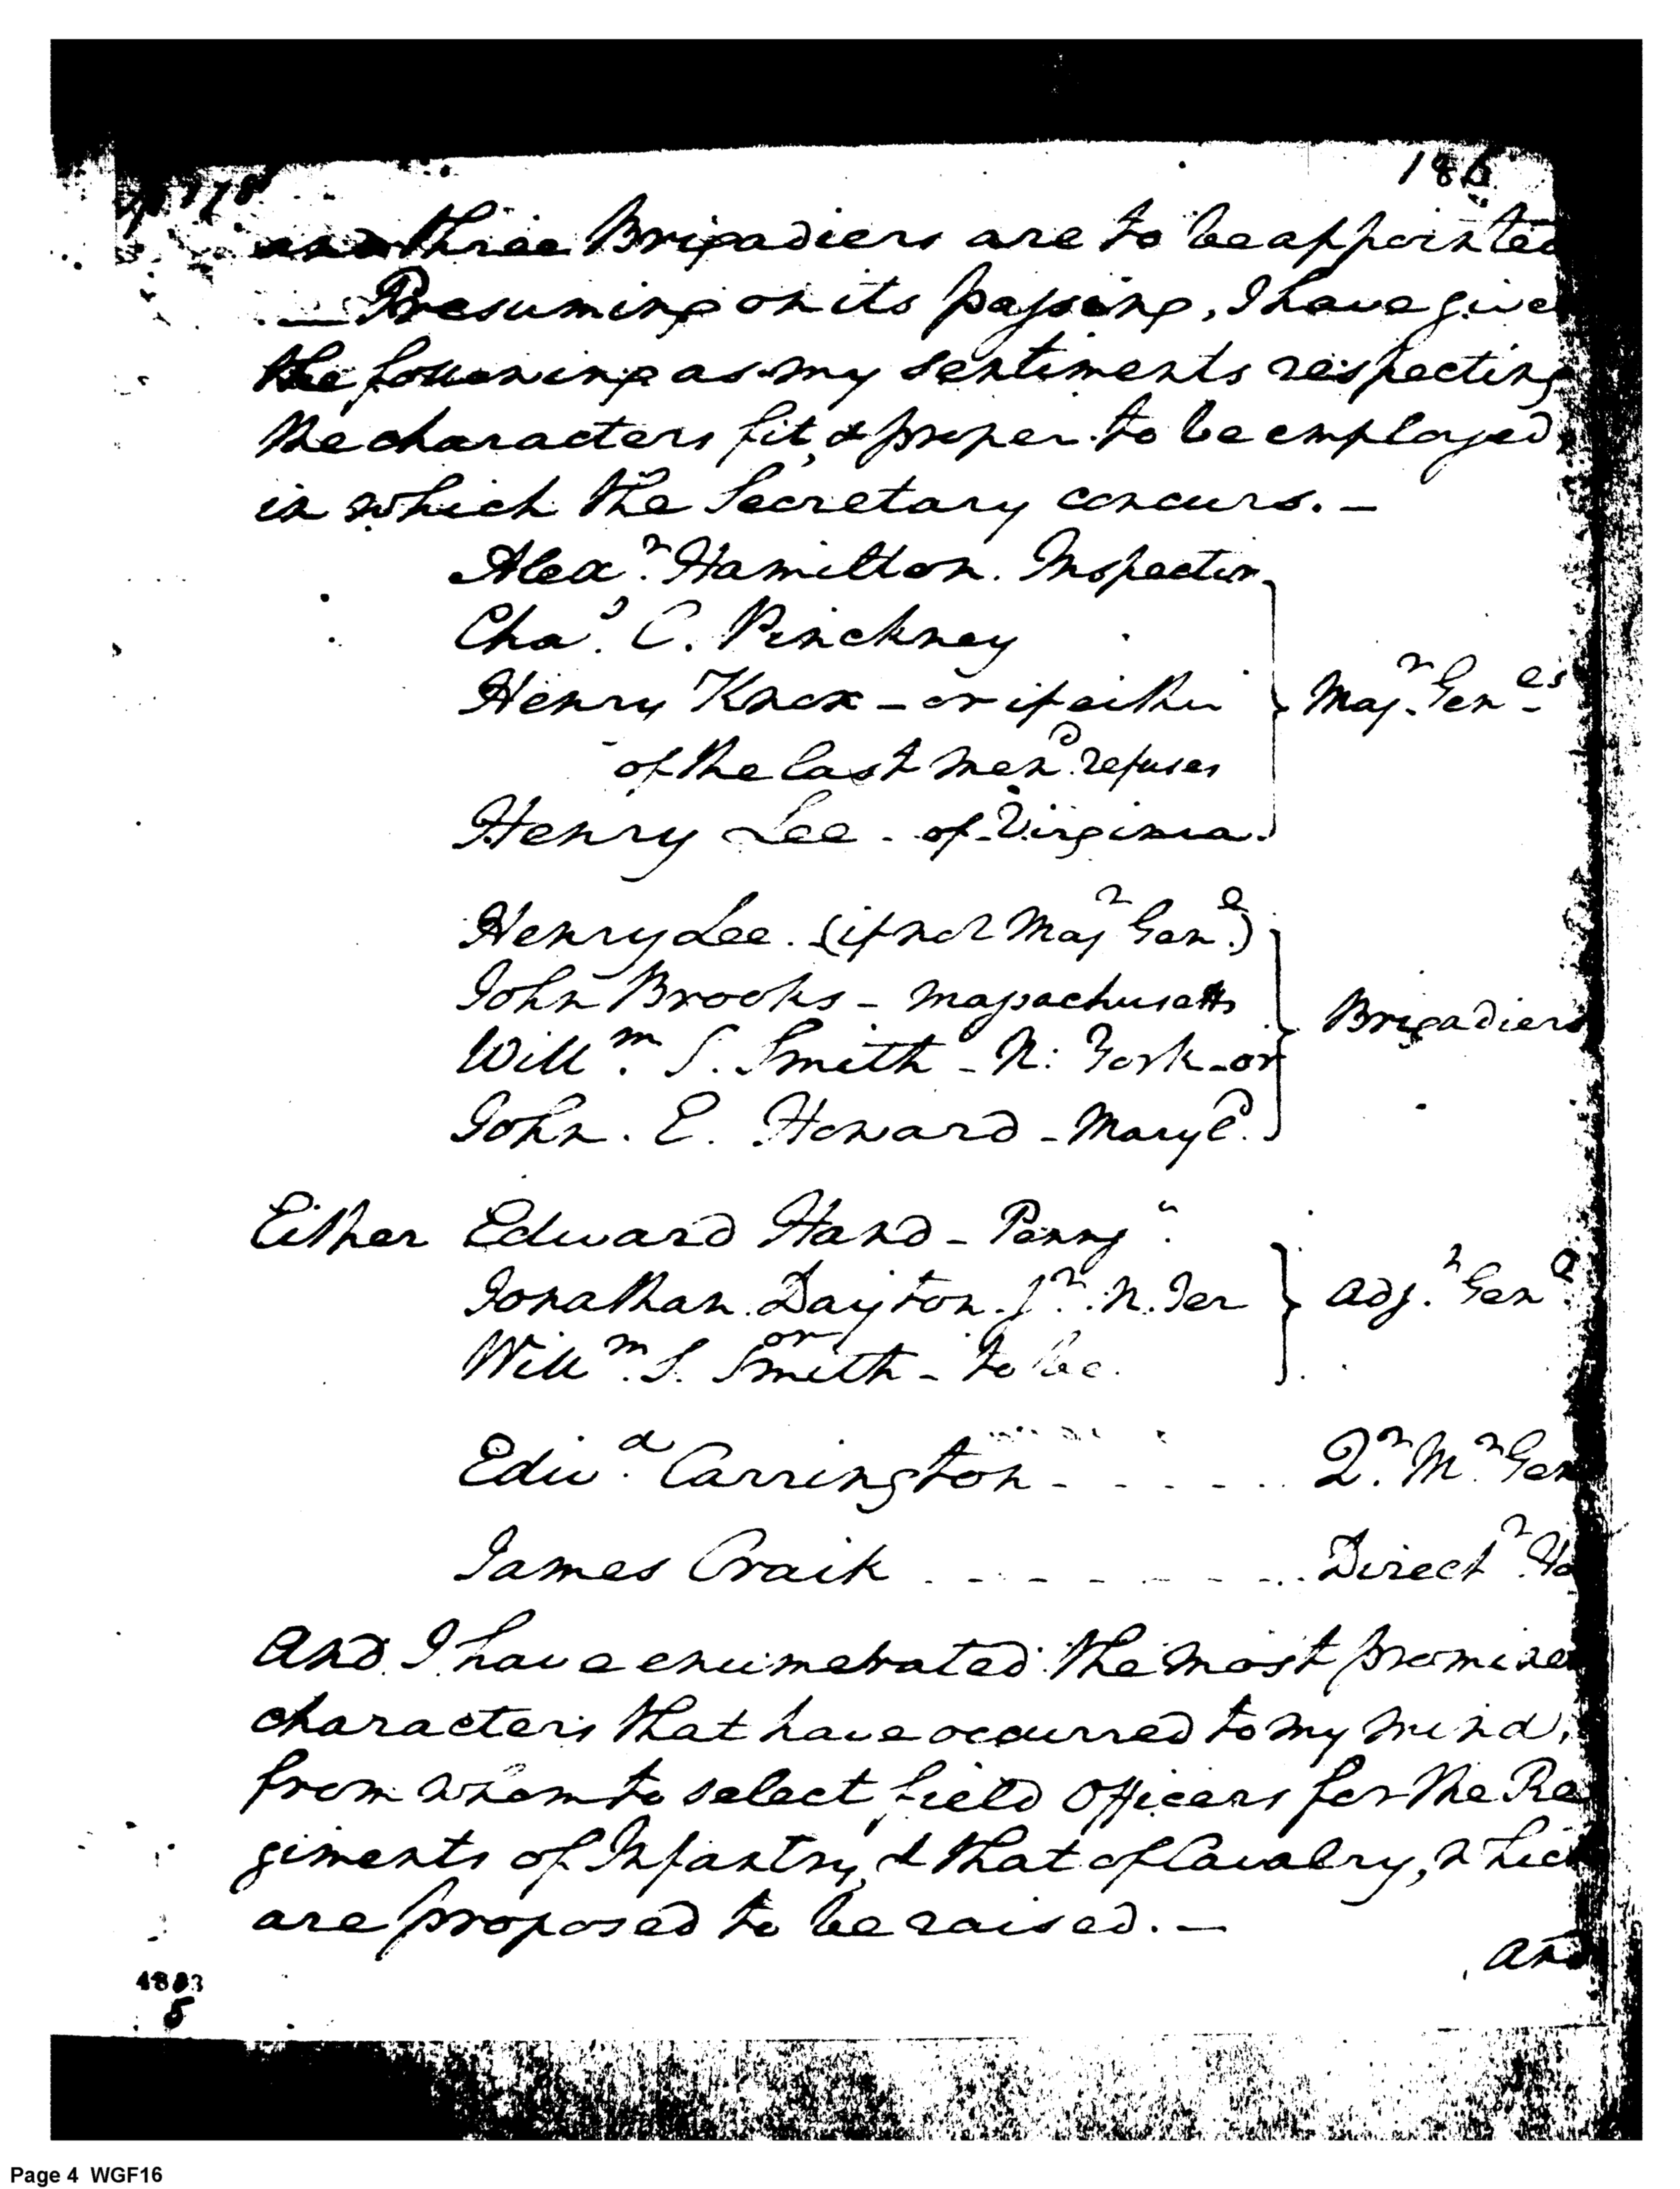 186
and three Brigadiers are to be appointed
— Presuming on its passing, I have give
the following as my sentiments respecting
the characters fit, & proper to be employed,
in which the Secretary concurs. —
Alexr. Hamilton. Inspector
Chas. C. Pinckney
Henry Knox – or if either
of the last mend. refuses
Majr. Genls
Henry Lee – of Virginia.
Henry Lee. (if not Majr Genl.)
John Brooks – Massachusetts
Brigadiers
Willm. S. Smith – N: York – or
John. E. Howard – Maryld.
Either Edward Hand – Pennsa.
Jonathan Dayton Jr. N. Jer
Adjr. Genl.
or
Willm. S. Smith – to be.
Edwd. Carrington - - - - - Qr. Mr. Gen
James Craik - - - - - - - - Directr. Ho
And I have enumerated the most promine
characters that have occurred to my mind,
from whom to select field Officers for the Re
giments of Infantry, & that of Cavalry, which
are proposed to be raised. —
and
5
Page 4 WGF16